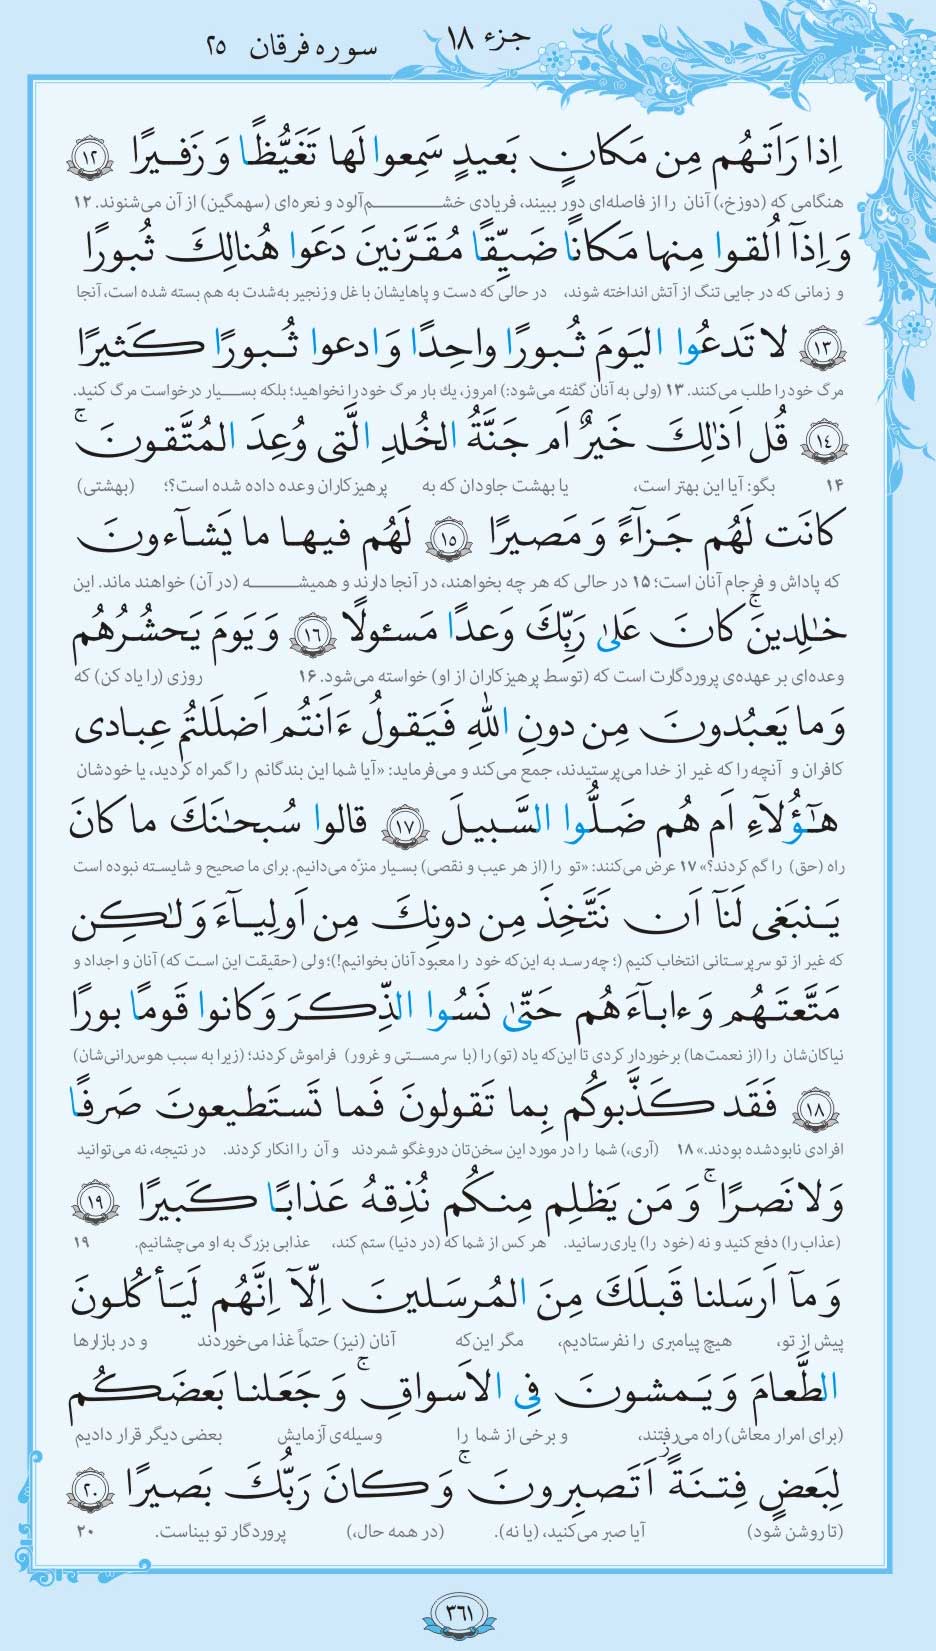 جزء ۱۸ سوره فرقان ۲۵
اِذا رَاَتهُم مِن مَکانٍ بَعیدٍ سَمِعوا لَها تَغَیُّظًا وَ زَفیرًا ﴿۱۲﴾
هنگامی که (دوزخ،) آنان را از فاصله‌ای دور ببیند، فریادی خشم‌آلود و نعره‌ای (سهمگین) از آن می‌شنوند. ۱۲
وَ اِذآ اُلقوا مِنها مَکانًا ضَیِّقًا مُقَرَّنینَ دَعَوا هُنالِكَ ثُبورًا
و زمانی که در جایی تنگ از آتش انداخته شوند، در حالی که دست و پاهایشان با غل و زنجیر به‌شدت به هم بسته شده است، آنجا
﴿۱۳﴾ لا تَدعُوا الیَومَ ثُبورًا واحِدًا وَ ادعوا ثُبورًا کَثیرًا
مرگ خود را طلب می‌کنند. ۱۳ (ولی به آنان گفته می‌شود:) امروز، یك بار مرگ خود را نخواهید؛ بلکه بسیار درخواست مرگ کنید.
﴿۱۴﴾ قُل اَذٰلِكَ خَیرٌ اَم جَنَّةُ الخُلدِ الَّتی وُعِدَ المُتَّقونَ ۚ
۱۴ بگو: آیا این بهتر است، یا بهشت جاودان که به پرهیزکاران وعده داده شده است؟؛ (بهشتی)
کانَت لَهُم جَزآءً وَ مَصیرًا ﴿۱۵﴾ لَهُم فیها ما یَشآءونَ
که پاداش و فرجام آنان است؛ ۱۵ در حالی که هر چه بخواهند، در آنجا دارند و همیشه (در آن) خواهند ماند. این
خٰلِدینَ ۚ کانَ عَلیٰ رَبِّكَ وَعدًا مَسئولًا ﴿۱۶﴾ وَ یَومَ یَحشُرُهُم
وعده‌ای بر عهده‌ی پروردگارت است که (توسط پرهیزکاران از او) خواسته می‌شود. ۱۶ روزی (را یاد کن) که
وَ ما یَعبُدونَ مِن دونِ اللّٰهِ فَیَقولُ ءَاَنتُم اَضلَلتُم عِبادی
کافران و آنچه را که غیر از خدا می‌پرستیدند، جمع می‌کند و می‌فرماید: «آیا شما این بندگانم را گمراه کردید، یا خودشان
هٰٓؤُلآءِ اَم هُم ضَلُّوا السَّبیلَ ﴿۱۷﴾ قالوا سُبحٰنَكَ ما کانَ
راه (حق) را گم کردند؟» ۱۷ عرض می‌کنند: «تو را (از هر عیب و نقصی) بسیار منزّه می‌دانیم. برای ما صحیح و شایسته نبوده است
یَنبَغی لَنآ اَن نَتَّخِذَ مِن دونِكَ مِن اَولِیآءَ وَلٰکِن
که غیر از تو سرپرستانی انتخاب کنیم (؛ چه رسد به این‌که خود را معبود آنان بخوانیم!)؛ ولی (حقیقت این است که) آنان و اجداد و
مَتَّعتَهُم وَ ءابآءَهُم حَتّیٰ نَسُوا الذِّکرَ وَ کانوا قَومًا بورًا
نیاکان‌شان را (از نعمت‌ها) برخوردار کردی تا این‌که یاد (تو) را (با سرمستی و غرور) فراموش کردند؛ (زیرا به سبب هوس‌رانی‌شان)
﴿۱۸﴾ فَقَد کَذَّبوکُم بِما تَقولونَ فَما تَستَطیعونَ صَرفًا
افرادی نابودشده بودند.» ۱۸ (آری،) شما را در مورد این سخن‌تان دروغگو شمردند و آن را انکار کردند. در نتیجه، نه می‌توانید
وَلا نَصرًا ۚ وَ مَن یَظلِم مِنکُم نُذِقهُ عَذابًا کَبیرًا ﴿۱۹﴾
(عذاب را) دفع کنید و نه (خود را) یاری رسانید. هر کس از شما که (در دنیا) ستم کند، عذابی بزرگ به او می‌چشانیم. ۱۹
وَ مآ اَرسَلنا قَبلَكَ مِنَ المُرسَلینَ اِلّآ اِنَّهُم لَیَأکُلونَ
پیش از تو، هیچ پیامبری را نفرستادیم، مگر این‌که آنان (نیز) حتماً غذا می‌خوردند و در بازارها
الطَّعامَ وَ یَمشونَ فِی الاَسواقِ ۚ وَ جَعَلنا بَعضَکُم
(برای امرار معاش) راه می‌رفتند، و برخی از شما را وسیله‌ی آزمایش بعضی دیگر قرار دادیم
لِبَعضٍ فِتنَةً اَتَصبِرونَ ۚ وَ کانَ رَبُّكَ بَصیرًا ﴿۲۰﴾
(تا روشن شود) آیا صبر می‌کنید، (یا نه). (در همه حال،) پروردگار تو بیناست. ۲۰
۳۶۱